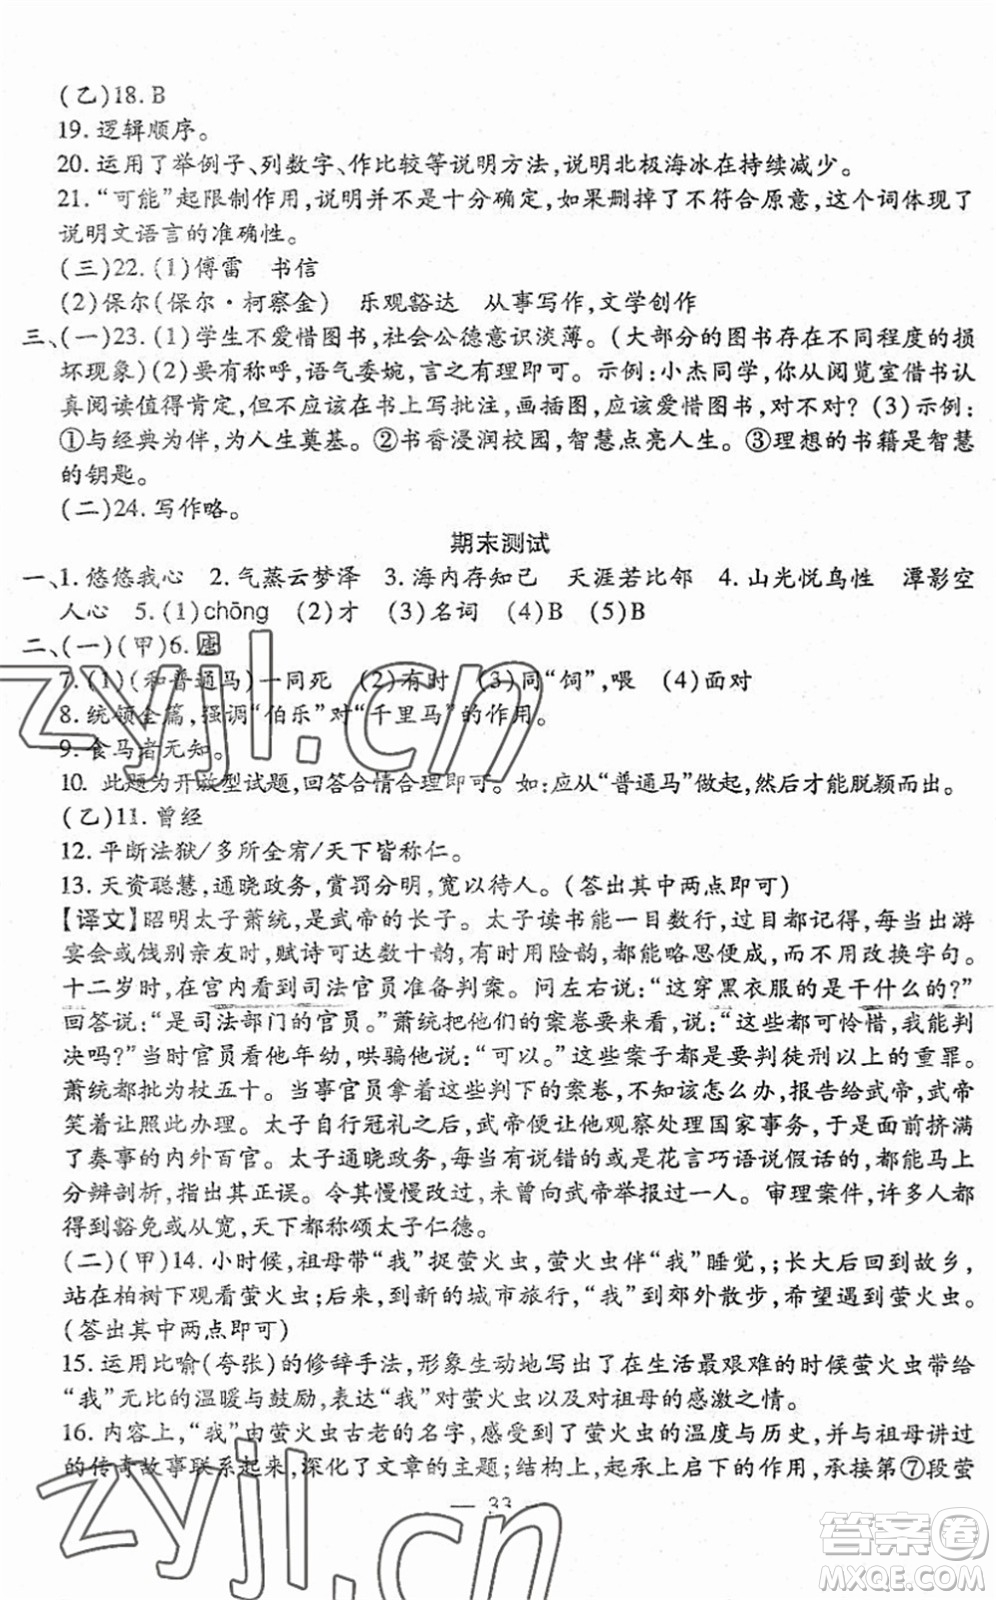 (乙)18. B
19. 逻辑顺序。
20. 运用了举例子、列数字、作比较等说明方法,说明北极海冰在持续减少。
21. “可能”起限制作用,说明并不是十分确定,如果删掉了不符合原意,这个词体现了
说明文语言的准确性。
(三)22. (1)傅雷 书信
(2)保尔(保尔·柯察金) 乐观豁达 从事写作,文学创作
三、(一)23. (1)学生不爱惜图书,社会公德意识淡薄。(大部分的图书存在不同程度的损
坏现象)(2)要有称呼,语气委婉,言之有理即可。示例:小杰同学,你从阅览室借书认
真阅读值得肯定,但不应该在书上写批注,画插图,应该爱惜图书,对不对? (3)示例:
①与经典为伴,为人生奠基。②书香浸润校园,智慧点亮人生。③理想的书籍是智慧
的钥匙。
(二)24. 写作略。
期末测试
一、1. 悠悠我心 2. 气蒸云梦泽 3. 海内存知己 天涯若比邻 4. 山光悦鸟性 潭影空
人心 5. (1)chōng (2)才 (3)名词 (4)B (5)B
二、(一)(甲)6. 唐
7. (1)(和普通马)一同死 (2)有时 (3)同“饲”,喂 (4)面对
8. 统领全篇,强调“伯乐”对“千里马”的作用。
9. 食马者无知。
10. 此题为开放型试题,回答合情合理即可。如:应从“普通马”做起,然后才能脱颖而出。
(乙)11. 曾经
12. 平断法狱/多所全宥/天下皆称仁。
13. 天资聪慧,通晓政务,赏罚分明,宽以待人。(答出其中两点即可)
【译文】昭明太子萧统,是武帝的长子。太子读书能一目数行,过目都记得,每当出游
宴会或饯别亲友时,赋诗可达数十韵,有时用险韵,都能略思便成,而不用改换字句。
十二岁时,在宫内看到司法官员准备判案。问左右说:“这穿黑衣服的是干什么的?”
回答说:“是司法部门的官员。”萧统把他们的案卷要来看,说:“这些都可怜惜,我能判
决吗?”当时官员看他年幼,哄骗他说:“可以。”这些案子都是要判徒刑以上的重罪。
萧统都批为杖五十。当事官员拿着这些判下的案卷,不知该怎么办,报告给武帝,武帝
笑着让照此办理。太子自行冠礼之后,武帝便让他观察处理国家事务,于是面前挤满
了奏事的内外百官。太子通晓政务,每当有说错的或是花言巧语说假话的,都能马上
分辨剖析,指出其正误。令其慢慢改过,未曾向武帝举报过一人。审理案件,许多人都
得到豁免或从宽,天下都称颂太子仁德。
(二)(甲)14. 小时候,祖母带“我”捉萤火虫,萤火虫伴“我”睡觉,;长大后回到故乡,
站在柏树下观看萤火虫;后来,到新的城市旅行,“我”到郊外散步,希望遇到萤火虫。
(答出其中两点即可)
15. 运用比喻(夸张)的修辞手法,形象生动地写出了在生活最艰难的时候萤火虫带给
“我”无比的温暖与鼓励,表达“我”对萤火虫以及对祖母的感激之情。
16. 内容上,“我”由萤火虫古老的名字,感受到了萤火虫的温度与历史,并与祖母讲过
的传奇故事联系起来,深化了文章的主题;结构上,起承上启下的作用,承接第⑦段萤
— 33 —
zyjl.cn
zyjl.cn
答案圈
MXQE.COM